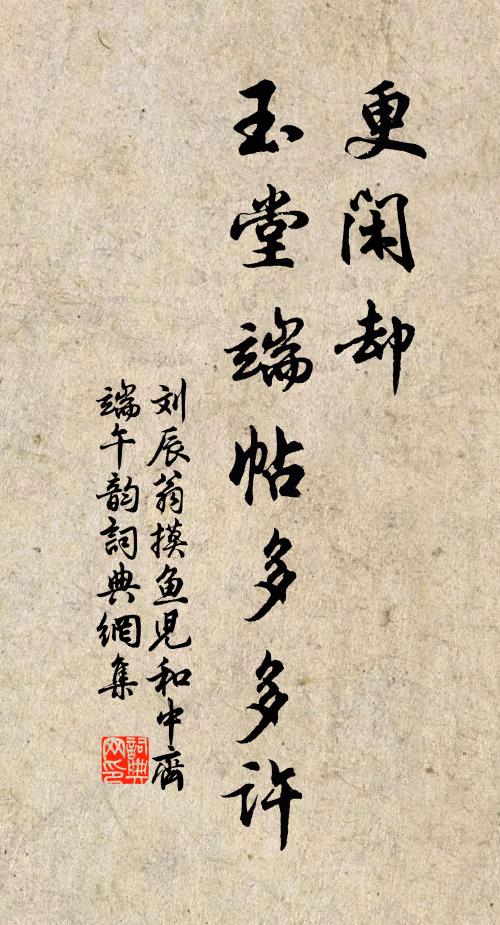 更闲却
玉堂端帖多多许
刘辰翁摸鱼児和中齋
端午韵詞典網集
詞典
网印